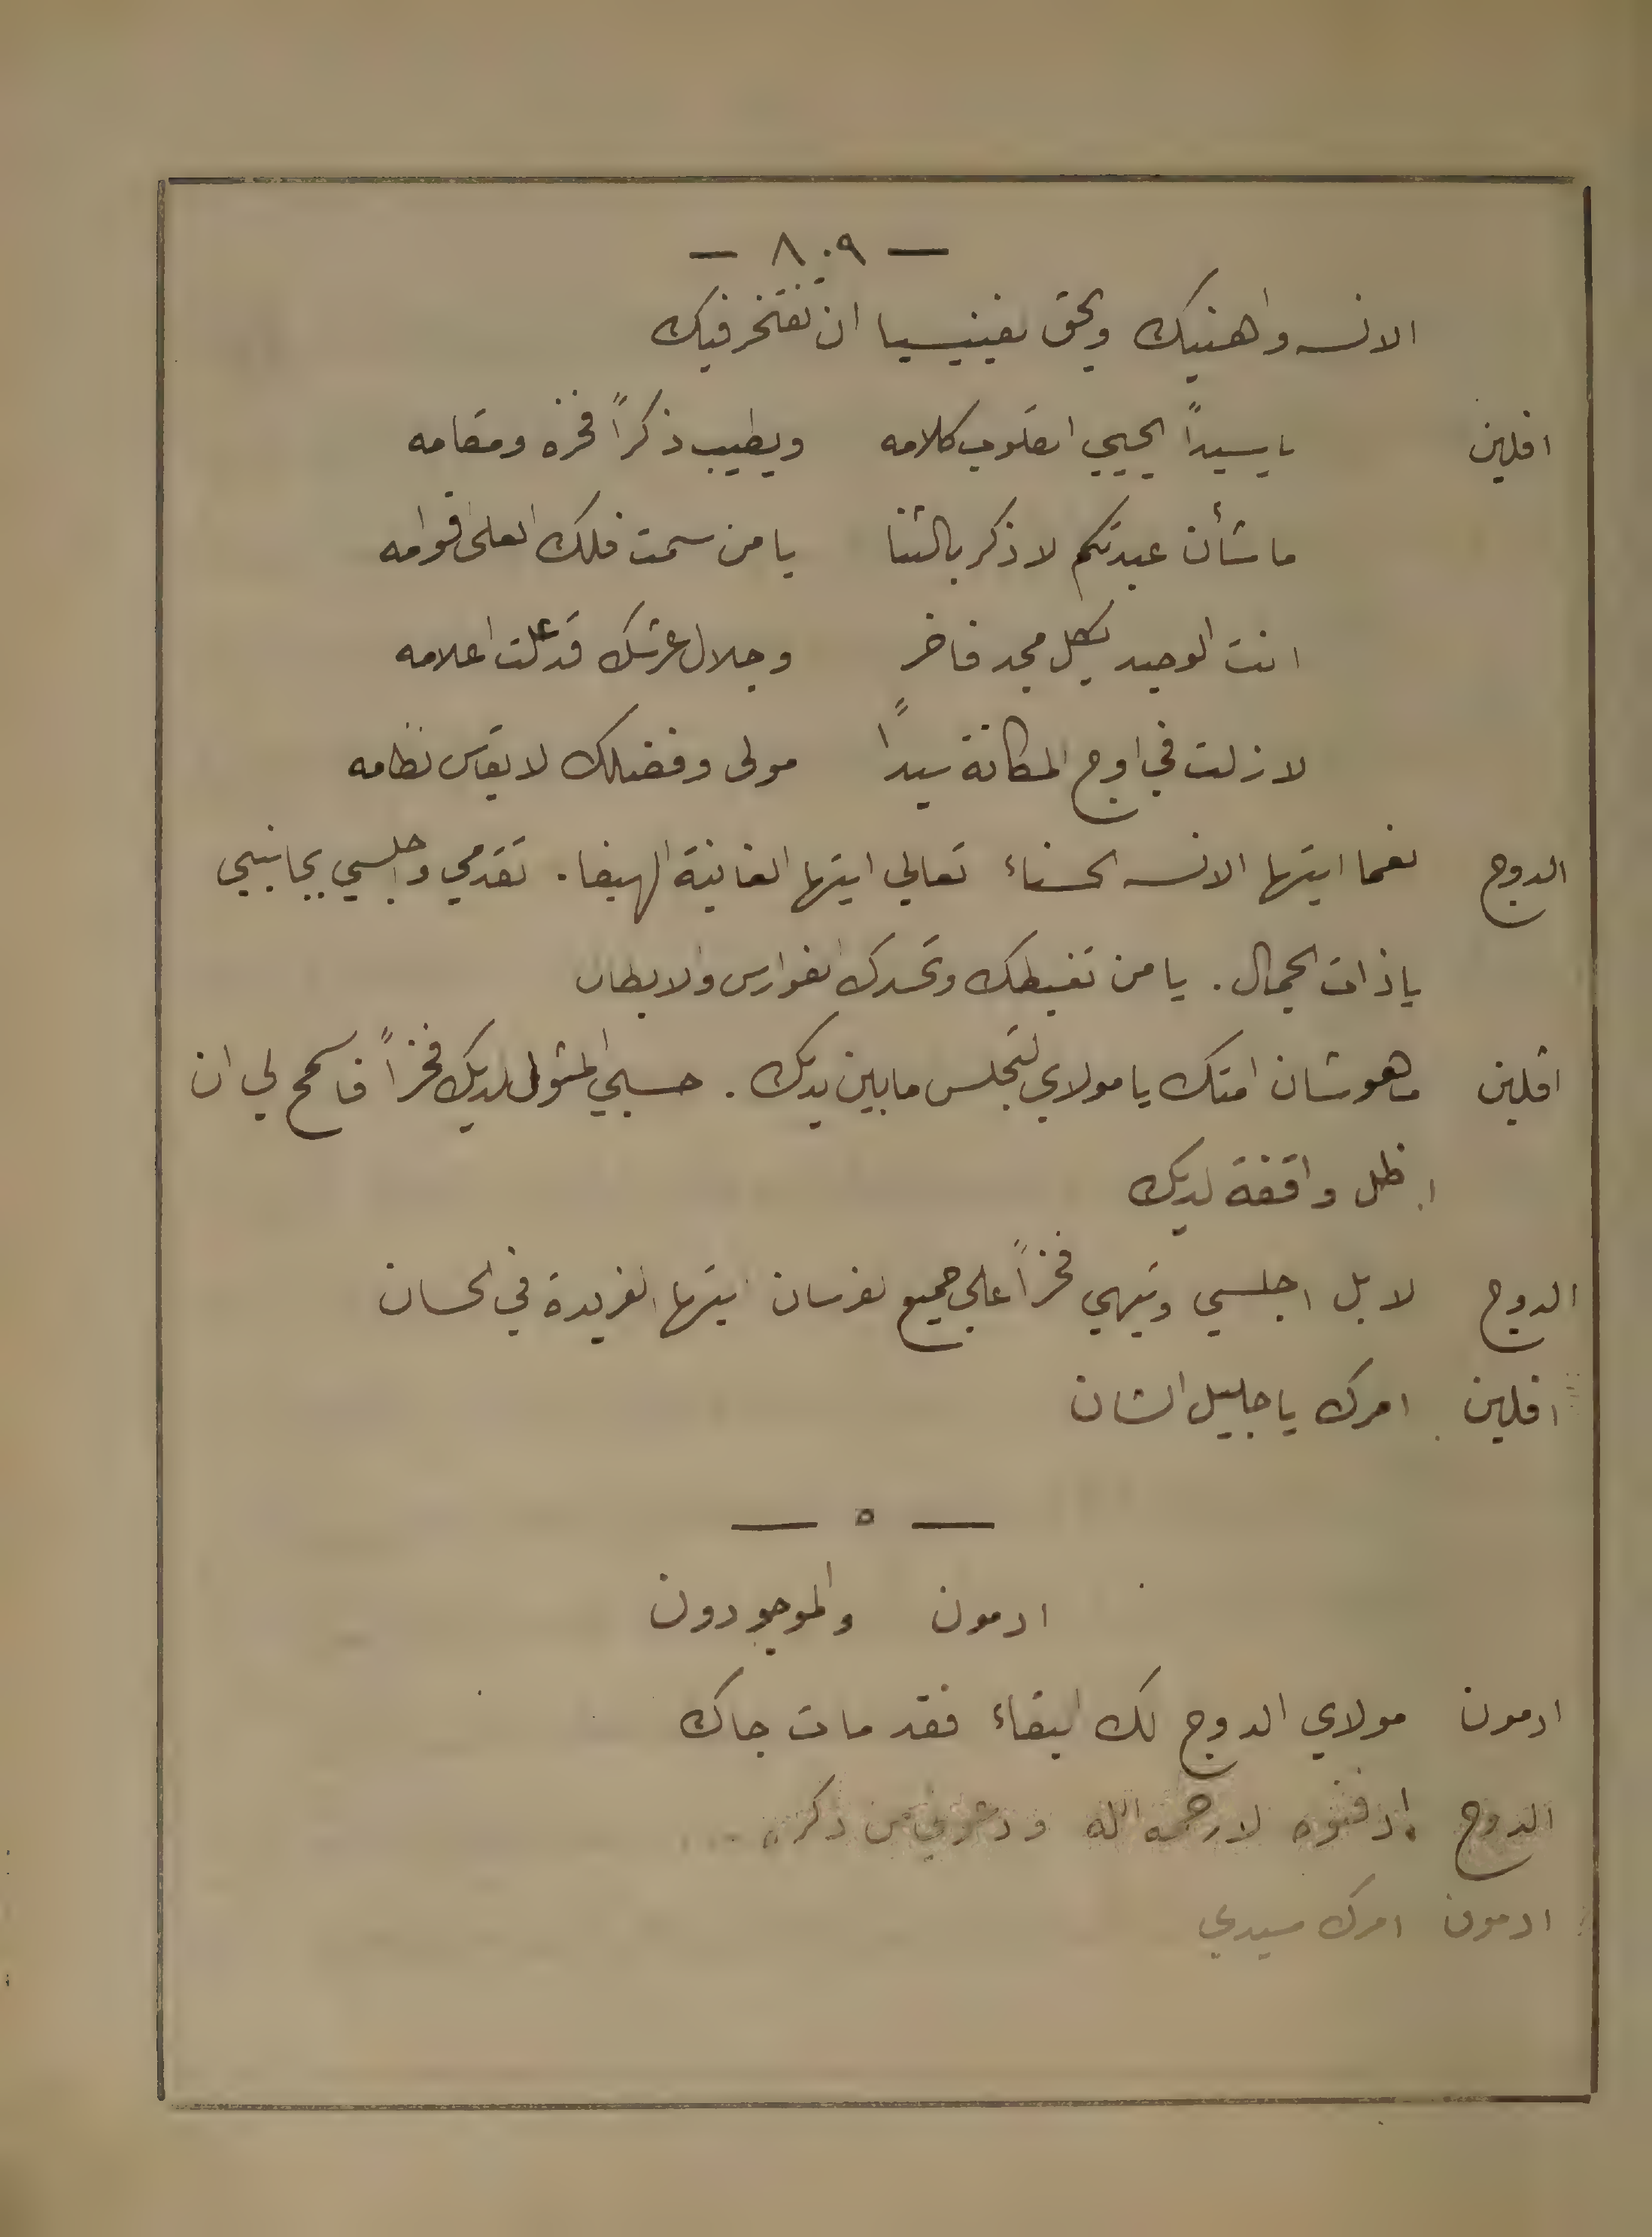 — ٨٠٩ —
الانسه واهنيك ويحق لفينيسيا ان تفتخر فيك
افلين يا سيداً يحيي القلوب كلامه ويطيب ذكراً فخره ومقامه
ما شأن عبدتكم لا ذكر بالثنا يا من سمت فلك العلى اقوامه
انت الوحيد بكل مجد فاخر وجلال عرشك قد علت اعلامه
لا زلت في اوج المكانة سيداً مولى وفضلك لا يقاس نظامه
الدوج نعما ايتها الانسه الحسناء تعالي ايتها الغانية الهيفا . تقدمي واجلسي بجانبي
يا ذات الجمال . يا من تغبطك وتحسدك الفوارس والابطال
افلين ما هو شان امتك يا مولاي لتجلس ما بين يديك . حسبي المثول لديك فخراً فاسمح لي ان
اظل واقفة لديك
الدوج لا بل اجلسي وتيهي فخراً على جميع الفرسان ايتها الفريدة في الحسان
افلين امرك يا جليل الشان
— ٥ —
ادمون والموجودون
ادمون مولاي الدوج لك البقاء فقد مات جاك
الدوج ادفنوه لا رحمه الله ودعوني من ذكره ...
ادمون امرك سيدي